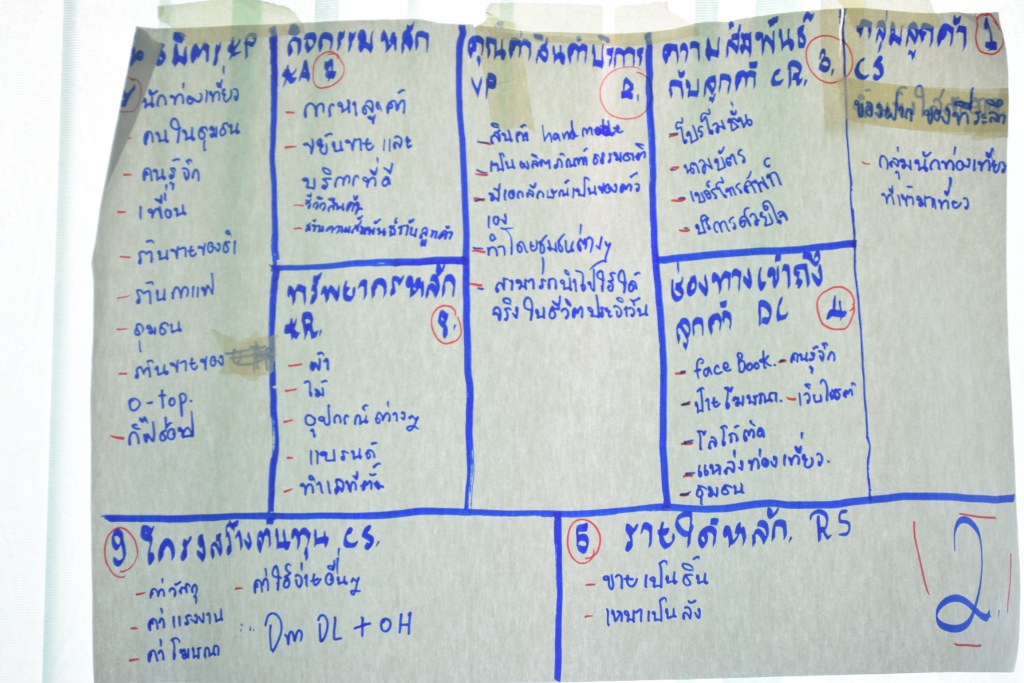 KP
- นักท่องเที่ยว
- คนในชุมชน
- คนรู้จัก
- เพื่อน
- ร้านขายของชำ
- ร้านกาแฟ
- ชุมชน
- ร้านขายของ
O-top.
- กิ๊ฟช้อป
กิจกรรมหลัก
KA
- การหาลูกค้า
- ขยันขาย และ
บริการที่ดี
- รีวิวสินค้า
- สร้างความสัมพันธ์กับลูกค้า
ทรัพยากรหลัก
KR. 8.
- ผ้า
- ไม้
- อุปกรณ์ต่างๆ
- แบรนด์
- ทำเลที่ตั้ง
คุณค่าสินค้าบริการ
VP 2.
- สินค้า hand made
- เป็นผลิตภัณฑ์ธรรมชาติ
- มีเอกลักษณ์เป็นของตัว
เอง
- ทำโดยชุมชนต่างๆ
- สามารถนำไปใช้ได้
จริงในชีวิตประจำวัน
ความสัมพันธ์
กับลูกค้า CR. 3.
- โปรโมชั่น
- นามบัตร
- เบอร์โทรศัพท์
- บริการด้วยใจ
ช่องทางเข้าถึง
ลูกค้า DC 4.
- face Book. - คนรู้จัก
- ป้ายโฆษณา. - เว็บไซต์
- โลโก้ติด
- แหล่งท่องเที่ยว.
- ชุมชน
กลุ่มลูกค้า 1
CS
- กลุ่มนักท่องเที่ยว
ที่เข้ามาเที่ยว
9 โครงสร้างต้นทุน CS.
- ค่าวัสดุ - ค่าใช้จ่ายอื่นๆ
- ค่าแรงงาน
- ค่าโฆษณา
Dm DL + OH
5 รายได้หลัก. RS
- ขายเป็นชิ้น
- เหมาเป็นลัง
2